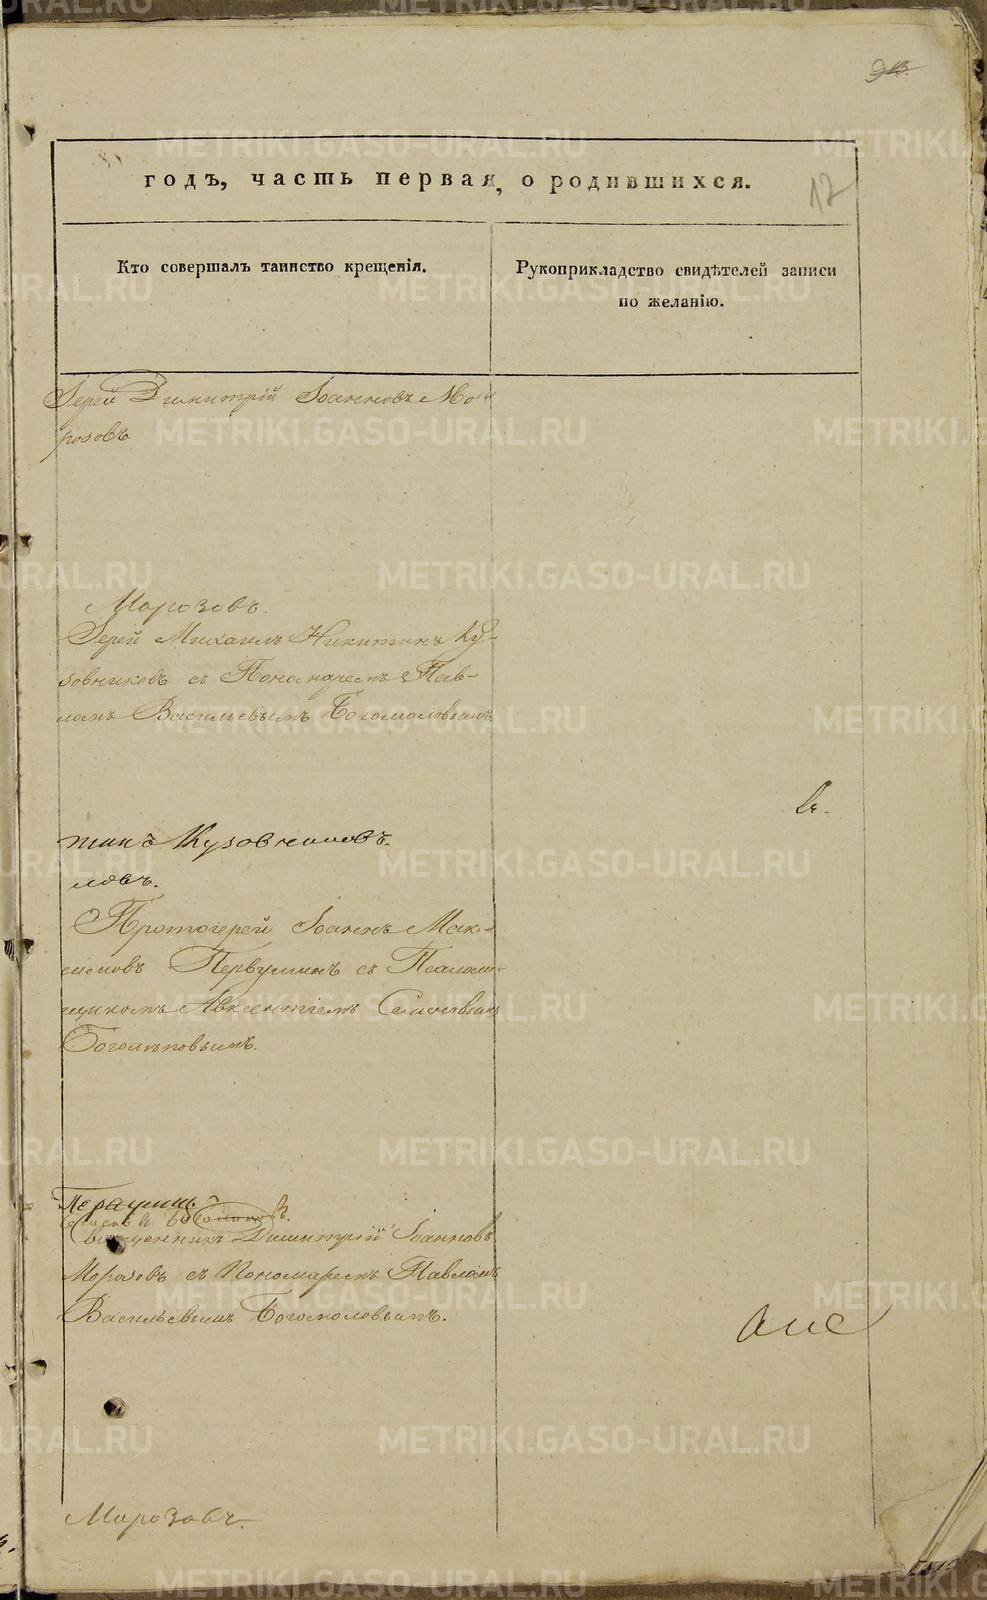 годъ, часть первая, о родившихся.
12
Кто совершалъ таинство крещенія.
Рукоприкладство свидѣтелей записи
по желанію.
Іерей Димитрій Іоанновъ Мо-
розовъ
Морозовъ.
Іерей Михаилъ Никитинъ Ку-
зовниковъ съ Пономаремъ Пав-
ломъ Васильевымъ Богомоловымъ
тинъ Кузовниковъ.
ловъ.
Протоіерей Іоаннъ Мак-
симовъ Первушинъ съ Псалом-
щикомъ Авксентіемъ Семеновымъ
Боголѣповымъ.
Священникъ Димитрій Іоанновъ
Морозовъ съ Пономаремъ Павломъ
Васильевымъ Богомоловымъ.
Морозовъ.
METRIKI.GASO-URAL.RU